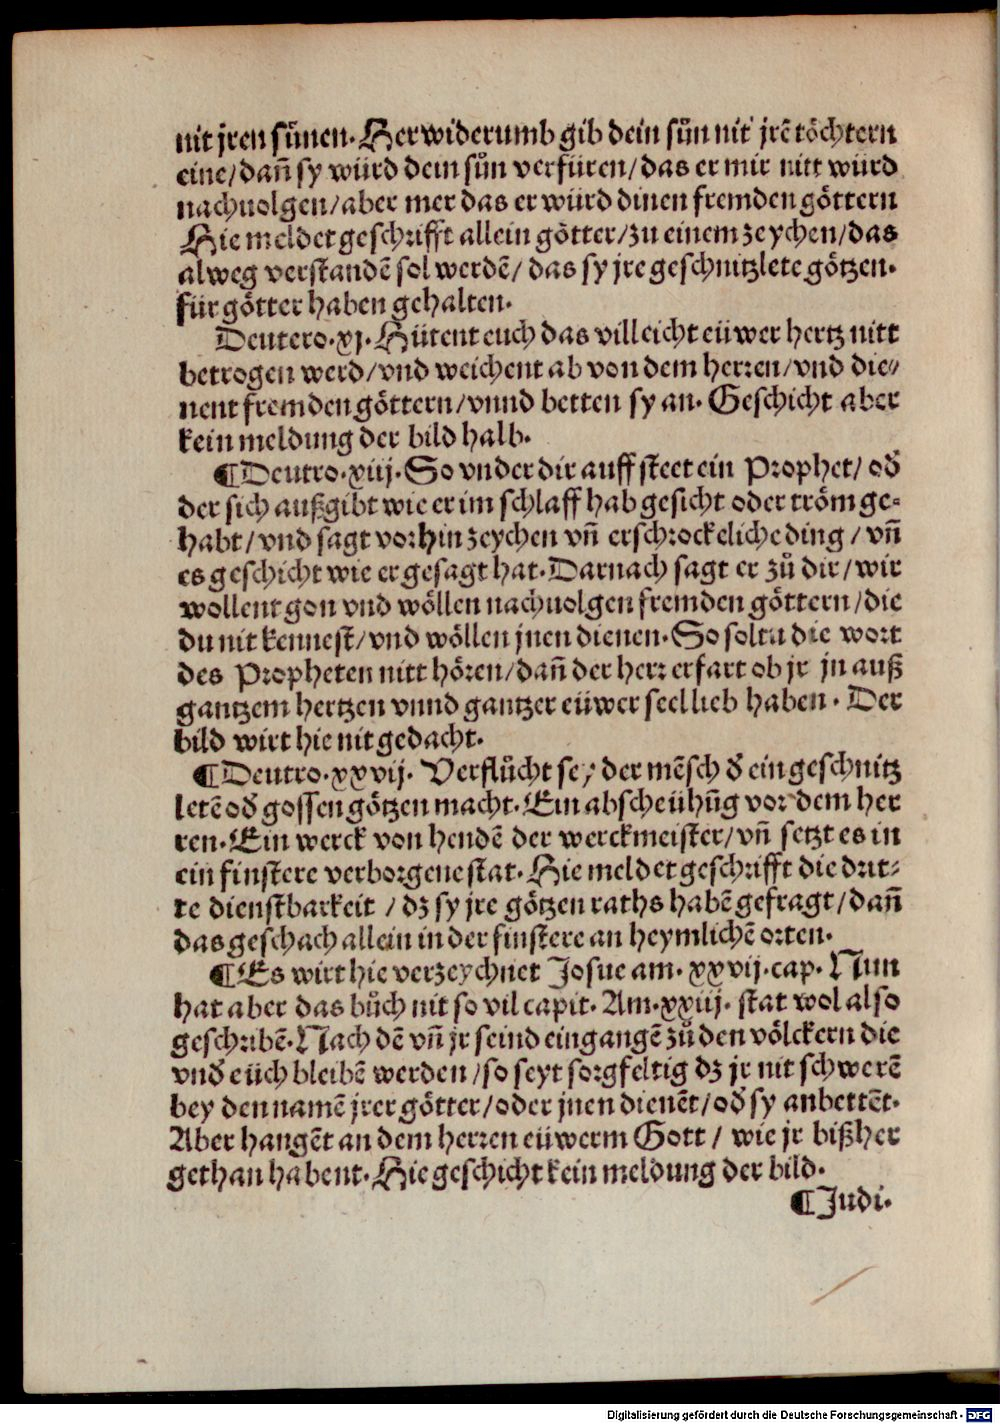 nit jren sünen. Herwiderumb gib dein sün nit jrē töchtern
eine/ dañ sy würd dein sůn verfüren/ das er mir nitt würd
nachuolgen/ aber mer das er würd dinen fremden göttern
Hie meldet geschrifft allein götter/ zu einem zeychen/ das
alweg verstandē sol werdē/ das sy jre geschnitzlete götzen.
für götter haben gehalten.
Deutero. xj. Hütent euch das villeicht eüwer hertz nitt
betrogen werd/ vnd weichent ab von dem herren/ vnd die⸗
nent fremden göttern/ vnnd betten sy an. Geschicht aber
kein meldung der bild halb.
¶ Deutro. xiij. So vnder dir auff steet ein Prophet/ oď
der sich außgibt wie er im schlaff hab gesicht oder tröm ge⸗
habt/ vnd sagt vorhin zeychen vñ erschrockeliche ding/ vñ
es geschicht wie er gesagt hat. Darnach sagt er zů dir/ wir
wollent gon vnd wöllen nachuolgen fremden göttern/ die
du nit kennest/ vnd wöllen jnen dienen. So soltu die wort
des Propheten nitt hören/ dañ der herr erfart ob jr jn auß
gantzem hertzen vnnd gantzer eüwer seel lieb haben. Der
bild wirt hie nit gedacht.
¶ Deutro. xxvij. Verflůcht sey der mēsch ď ein geschnitz
letē oď gossen götzen macht. Ein abscheühūg vor dem her
ren. Ein werck von hendē der werckmeister/ vñ setzt es in
ein finstere verborgene stat. Hie meldet geschrifft die drit⸗
te dienstbarkeit/ dz sy jre götzen raths habē gefragt/ dañ
das geschach allein in der finstere an heymlichē orten.
¶ Es wirt hie verzeychnet Josue am. xxvij. cap. Nun
hat aber das bůch nit so vil capit. Am. xxiij. stat wol also
geschribē. Nach dē vñ jr seind eingangē zů den völckern die
vnď eüch bleibē werden/ so seyt sorgfeltig dz jr nit schwerē
bey den namē jrer götter/ oder jnen dienēt/ oď sy anbettēt.
Aber hangēt an dem herren eüwerm Gott/ wie jr bißher
gethan habent. Hie geschicht kein meldung der bild.
¶ Judi.
Digitalisierung gefördert durch die Deutsche Forschungsgemeinschaft - DFG